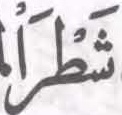 شَطْرَ الْ